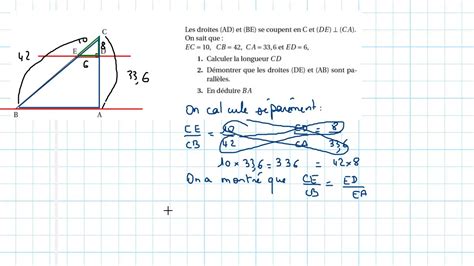 Les droites (AD) et (BE) se coupent en C et (DE) ⊥ (CA).
On sait que :
EC = 10, CB = 42, CA = 33,6 et ED = 6,
1. Calculer la longueur CD
2. Démontrer que les droites (DE) et (AB) sont parallèles.
3. En déduire BA
C
10
8
E
D
6
42
33,6
B
A
On calcule séparément :
CE/CB = 10/42 CD/CA = 8/33,6
10 × 33,6 = 336 = 42 × 8
On a montré que CE/CB = ED/EA